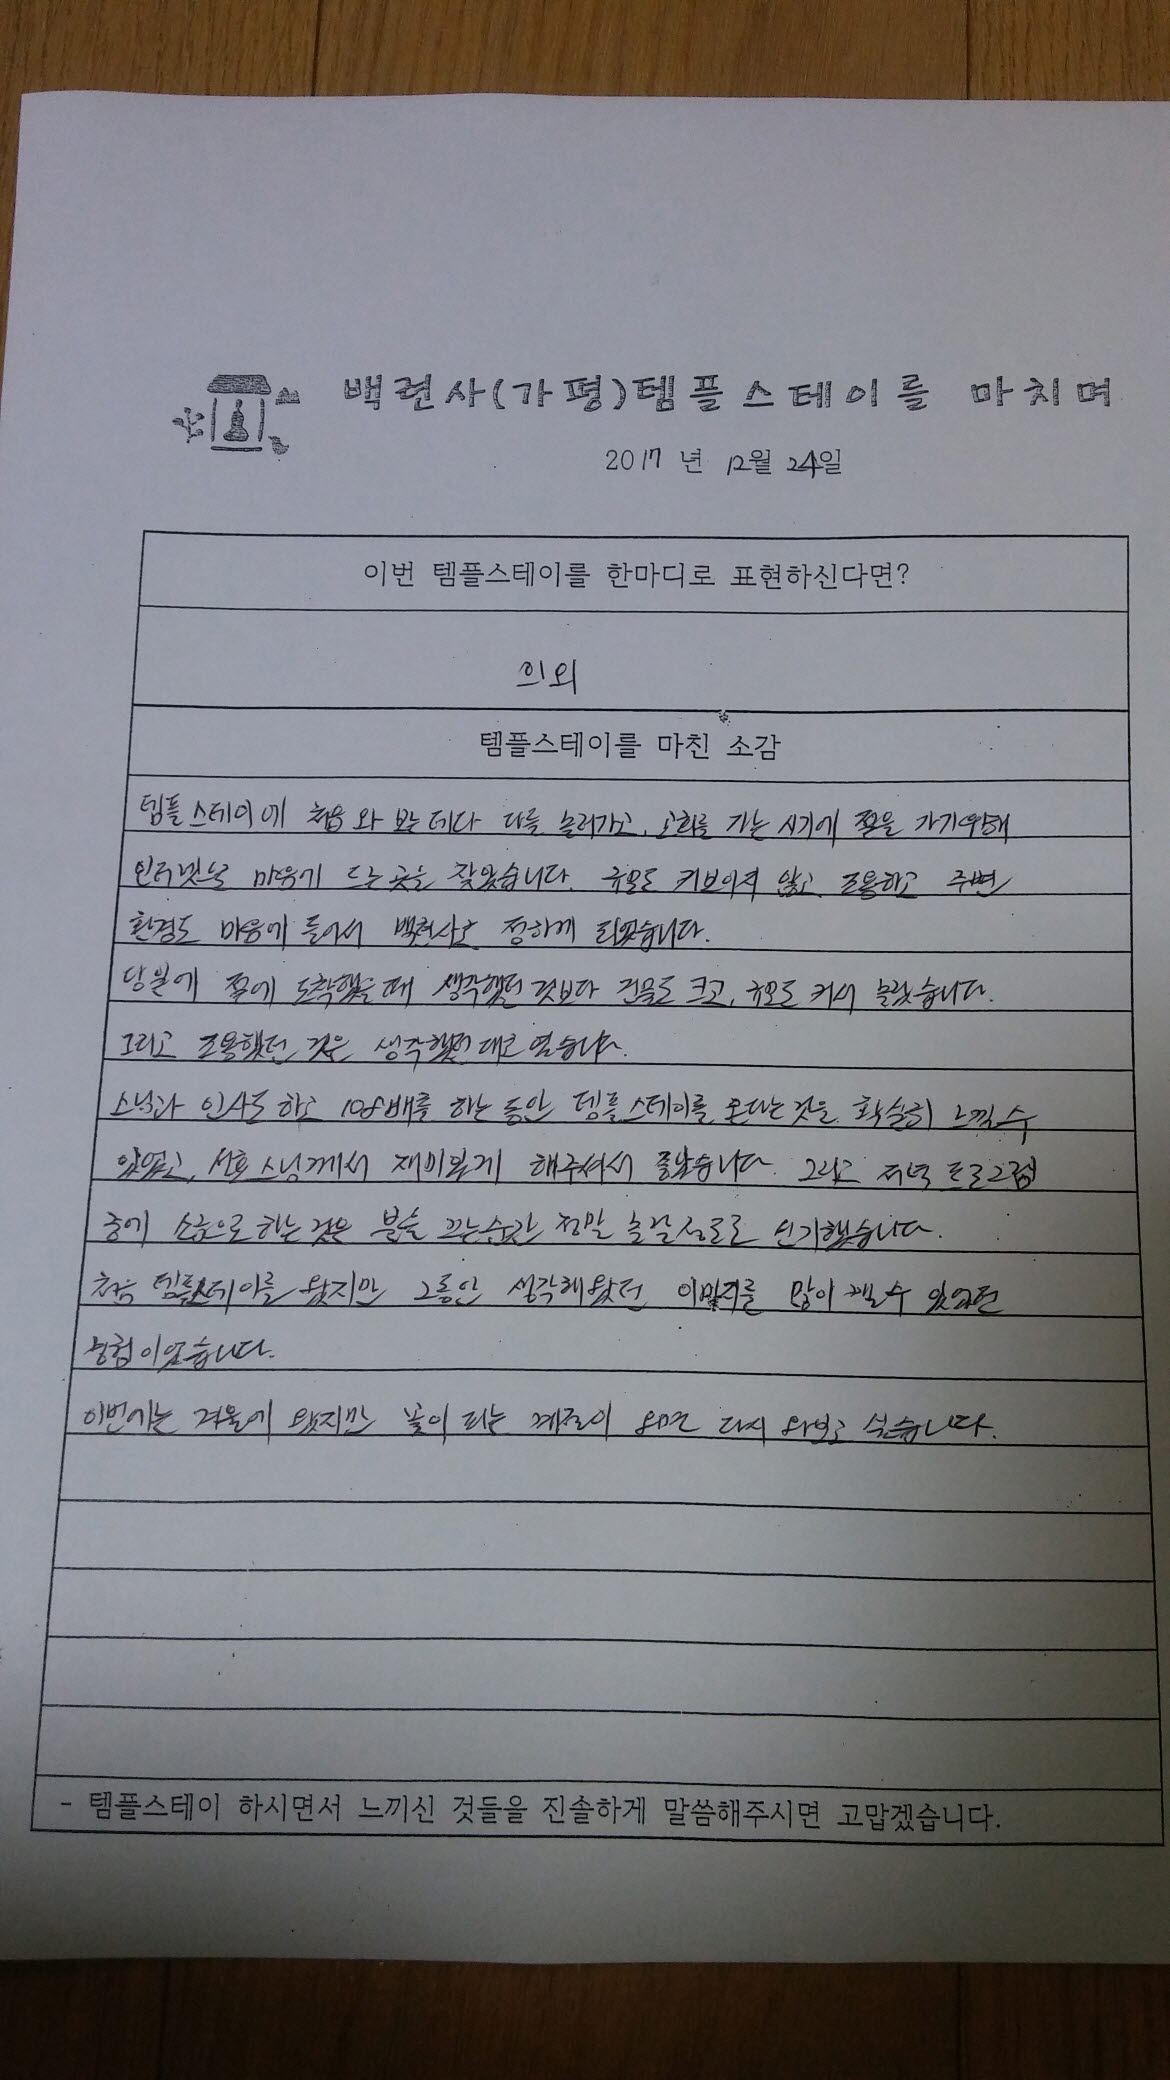 백련사(가평)템플스테이를 마치며
2017 년 12월 24일
이번 템플스테이를 한마디로 표현하신다면?
의외
템플스테이를 마친 소감
템플스테이에 처음 와 보는데다 다를 놀러가고, 교회를 가는 시기에 절을 가기위해
인터넷으로 마음에 드는 곳을 찾았습니다. 규모도 커보이지 않고 조용하고 주변
환경도 마음에 들어서 백련사로 정하게 되었습니다.
당일에 절에 도착했을 때 생각했던 것보다 건물도 크고, 규모도 커서 놀랐습니다.
그리고 조용했던 것은 생각했던대로 였습니다.
스님과 인사도 하고 108배를 하는 동안 템플스테이를 온다는 것을 확실히 느낄수
있었고, 스님께서 재미있게 해주셔서 좋았습니다. 그리고 저녁 프로그램
중에 소금으로 하는 것은 불을 끄는순간 정말 놀랄정도로 신기했습니다.
처음 템플스테이를 왔지만 그동안 생각해왔던 이미지를 많이 깰수 있었던
경험이었습니다.
이번에는 겨울에 왔지만 꽃이 피는 계절이 오면 다시 와보고 싶습니다.
- 템플스테이 하시면서 느끼신 것들을 진솔하게 말씀해주시면 고맙겠습니다.